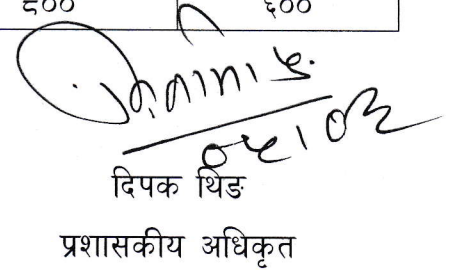 ८०० ६००
दिपक थिङ
प्रशासकीय अधिकृत